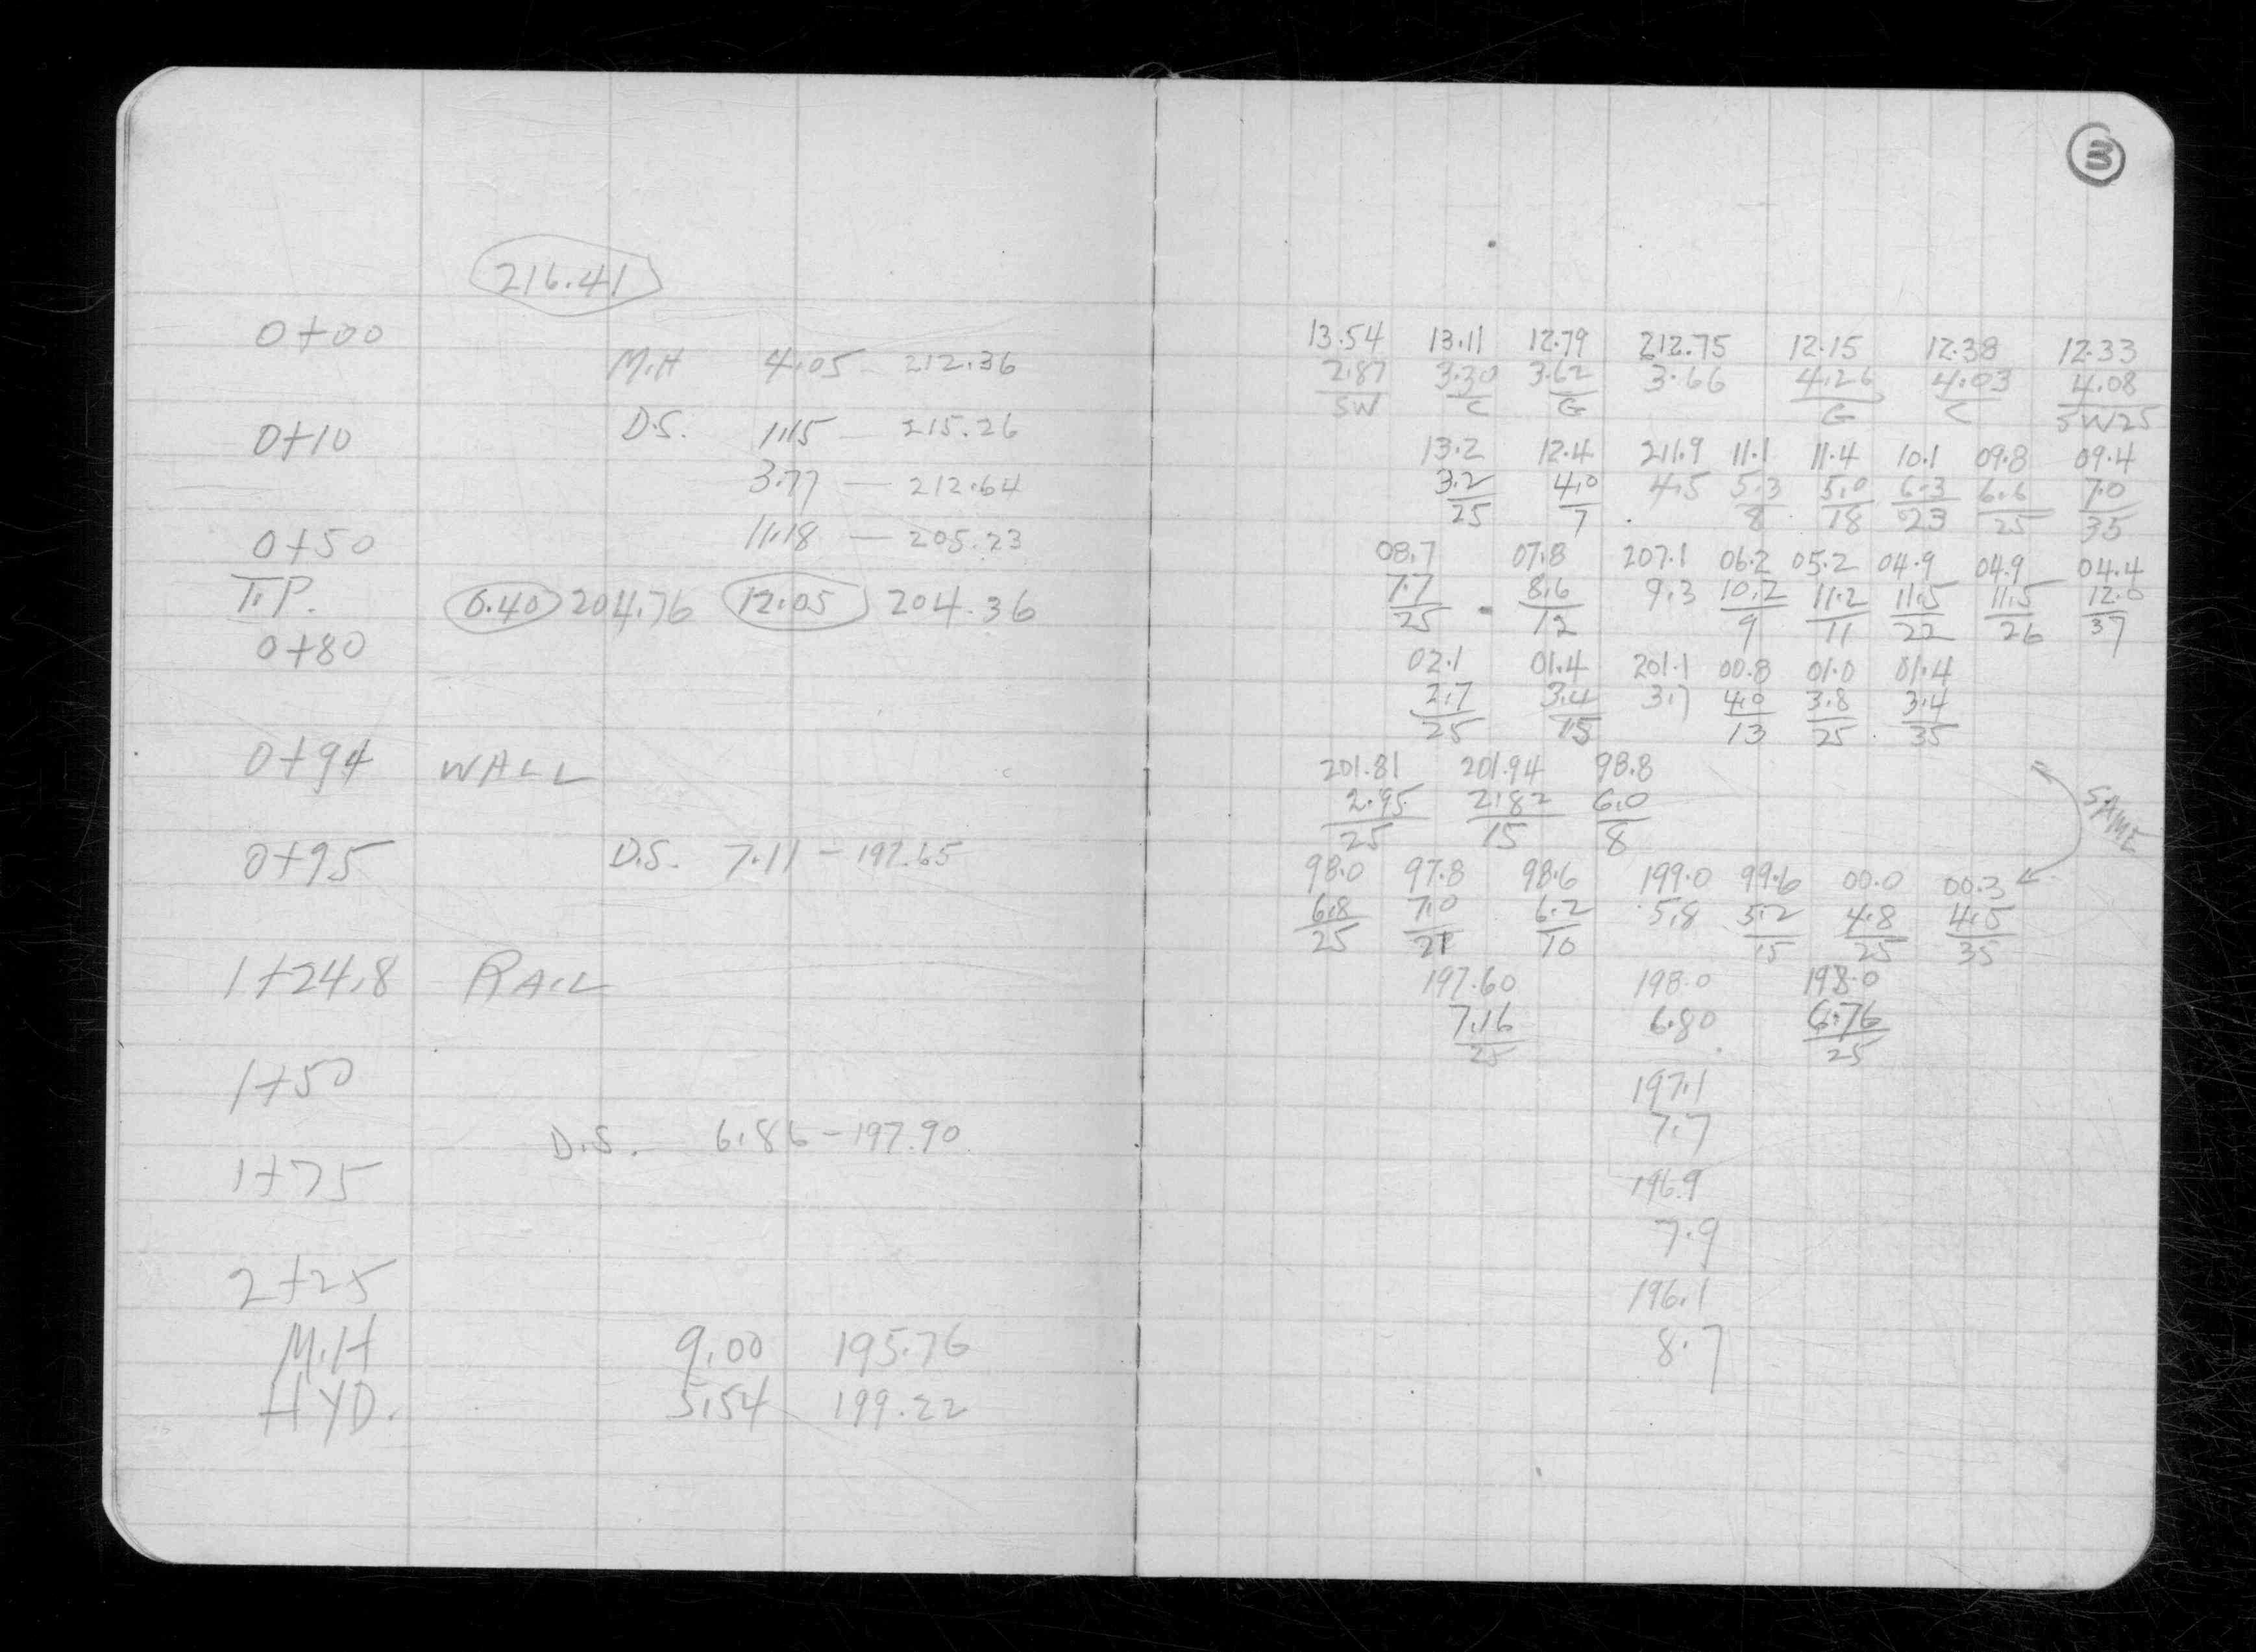 216.41
0+00
M.H 4.05 - 212.36
0+10 D.S. 1.15 — 215.26
3.77 — 212.64
11.18 — 205.23
0+50
T.P. 0.40 204.76 12.05 204.36
0+80
0+94 WALL
0+95 D.S. 7.11 - 197.65
1+24.8 RAIL
1+50
D.S. 6.86 - 197.90
1+75
2+25
M.H 9.00 195.76
HYD. 5.54 199.22
3
13.54 13.11 12.79 212.75 12.15 12.38 12.33
2.87 3.30 3.62 3.66 4.26 4.03 4.08
SW C G G C SW25
13.2 12.4 211.9 11.1 11.4 10.1 09.8 09.4
3.2 4.0 4.5 5.3 5.0 6.3 6.6 7.0
25 7 8 18 23 25 35
08.7 07.8 207.1 06.2 05.2 04.9 04.9 04.4
7.7 8.6 9.3 10.2 11.2 11.5 11.5 12.0
25 12 9 11 22 26 37
02.1 01.4 201.1 00.8 01.0 01.4
2.7 3.4 3.7 4.0 3.8 3.4
25 15 13 25 35
201.81 201.94 98.8
2.95 2.82 6.0
25 15 8
SAME
98.0 97.8 98.6 199.0 99.6 00.0 00.3
6.8 7.0 6.2 5.8 5.2 4.8 4.5
25 21 10 15 25 35
197.60 198.0 198.0
7.16 6.80 6.76
25 25
197.1
7.7
196.9
7.9
196.1
8.7